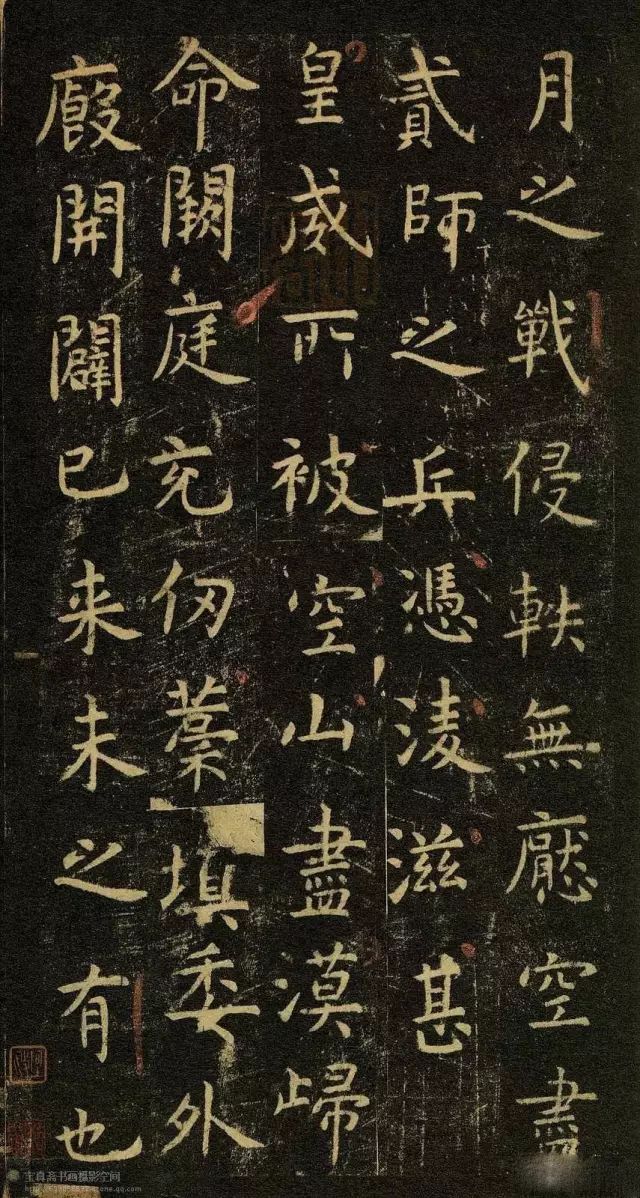 月之戰侵軼無厭空盡
貳師之兵憑淩滋甚
皇威所被空山盡漠歸
命闕庭充仞藁填委外
廄開闢已来未之有也